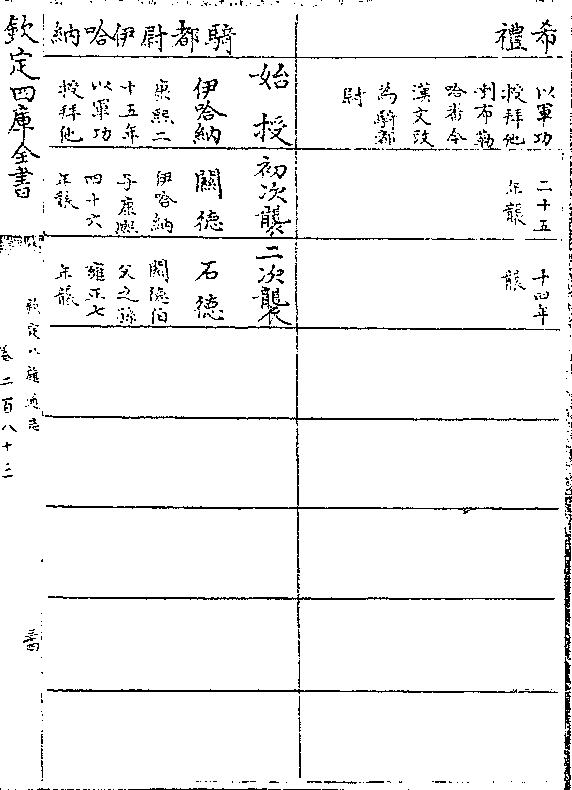 希禮
以軍功
授拜他
喇布勒
哈番今
漢文改
為騎都
尉
二十五
年襲
十四年
襲
騎都尉伊哈納
始授
伊哈納
康熙二
十五年
以軍功
授拜他
初次襲
關德
伊哈納
子康熙
四十六
年襲
二次襲
石德
關德伯
父之孫
雍正七
年襲
欽定四庫全書
欽定八旗通志
卷二百八十三